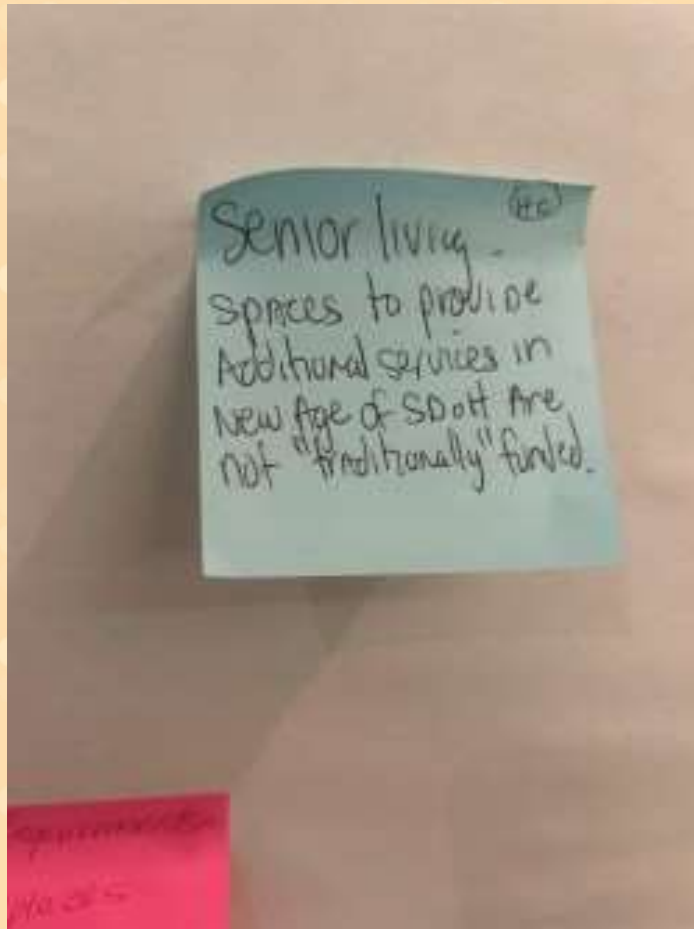 HC
Senior living -
spaces to provide
Additional services in
New Age of SDoH Are
not "traditionally" funded.